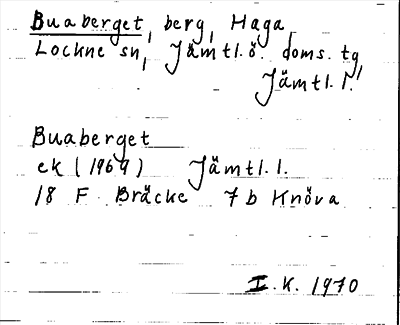 Buaberget, berg, Haga,
Lockne sn, Jämtl.ö. doms. tg,
Jämtl. l.
Buaberget
ek (1969) Jämtl. l.
18 F Bräcke 7 b Knöva
I.K. 1970